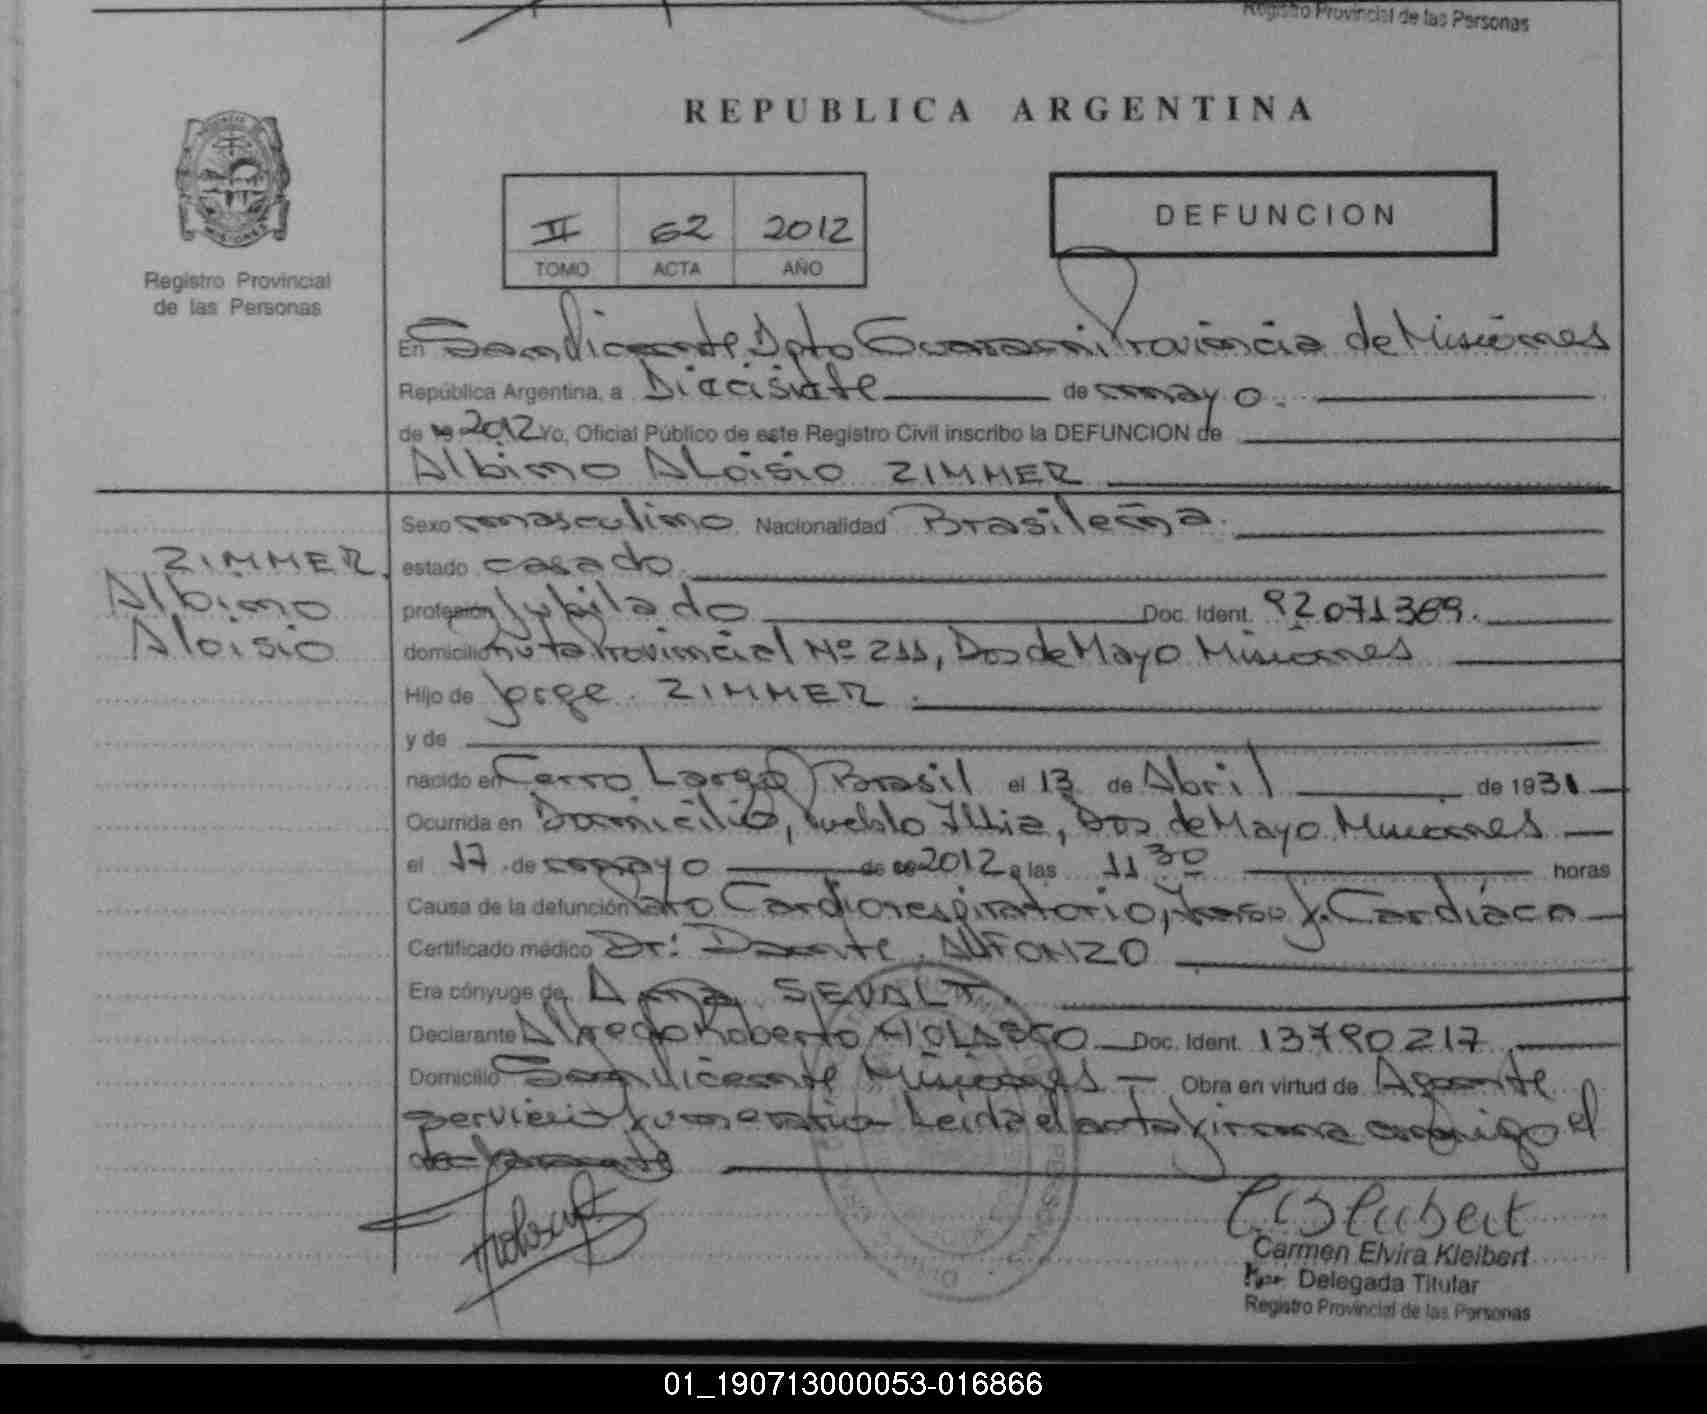 Registro Provincial de las Personas
REPUBLICA ARGENTINA
II 62 2012
TOMO ACTA AÑO
DEFUNCION
Registro Provincial
de las Personas
En San Vicente Dpto Guarani Provincia de Misiones
República Argentina, a Diecisiete de mayo.
de 2012 Yo, Oficial Público de este Registro Civil inscribo la DEFUNCION de
Albino Aloisio ZIMMER
ZIMMER
Albino
Aloisio
Sexo masculino Nacionalidad Brasileña.
estado casado
profesión Jubilado Doc. Ident. 92071369.
domicilio Ruta Provincial Nº 211, Dos de Mayo Misiones
Hijo de Jorge ZIMMER.
y de
nacido en Cerro Largo, Brasil el 13 de Abril de 1931
Ocurrida en Domicilio, Pueblo Illia, Dos de Mayo Misiones
el 17 de mayo de 2012 a las 11 30 horas
Causa de la defunción Paro Cardiorespiratorio, Cardíaca
Certificado médico Dr: Dante ALFONZO
Era cónyuge de Ana SEVALT.
Declarante Alfredo Roberto Doc. Ident. 13790217
Domicilio San Vicente Misiones - Obra en virtud de Agente
servicio funerario Leida el acta firma conmigo el
declarante
Carmen Elvira Kleibert
Delegada Titular
Registro Provincial de las Personas
01_190713000053-016866